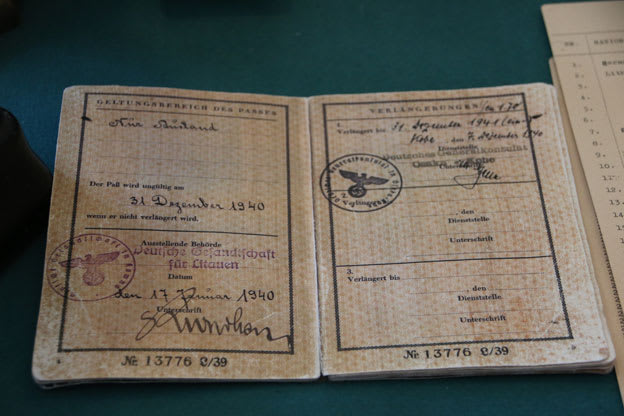 GELTUNGSBEREICH DES PASSES
Nur Ausland
Der Paß wird ungültig am
31 Dezember 1940
wenn er nicht verlängert wird.
Ausstellende Behörde
Deutsche Gesandtschaft
für Litauen
Datum
den 17 Januar 1940
Unterschrift
№ 13776 2/39
VERLÄNGERUNGEN
1.
Verlängert bis 31 Dezember 1941
Kobe, den 7. Dezember 1940
Dienststelle
Deutsches Generalkonsulat
Osaka-Kobe
2.
, den
Dienststelle
Unterschrift
3.
Verlängert bis
, den
Dienststelle
Unterschrift
№ 13776 2/39
1.
2.
3.
4.
5.
6.
7.
8.
9.
10
11
12
13
14
15